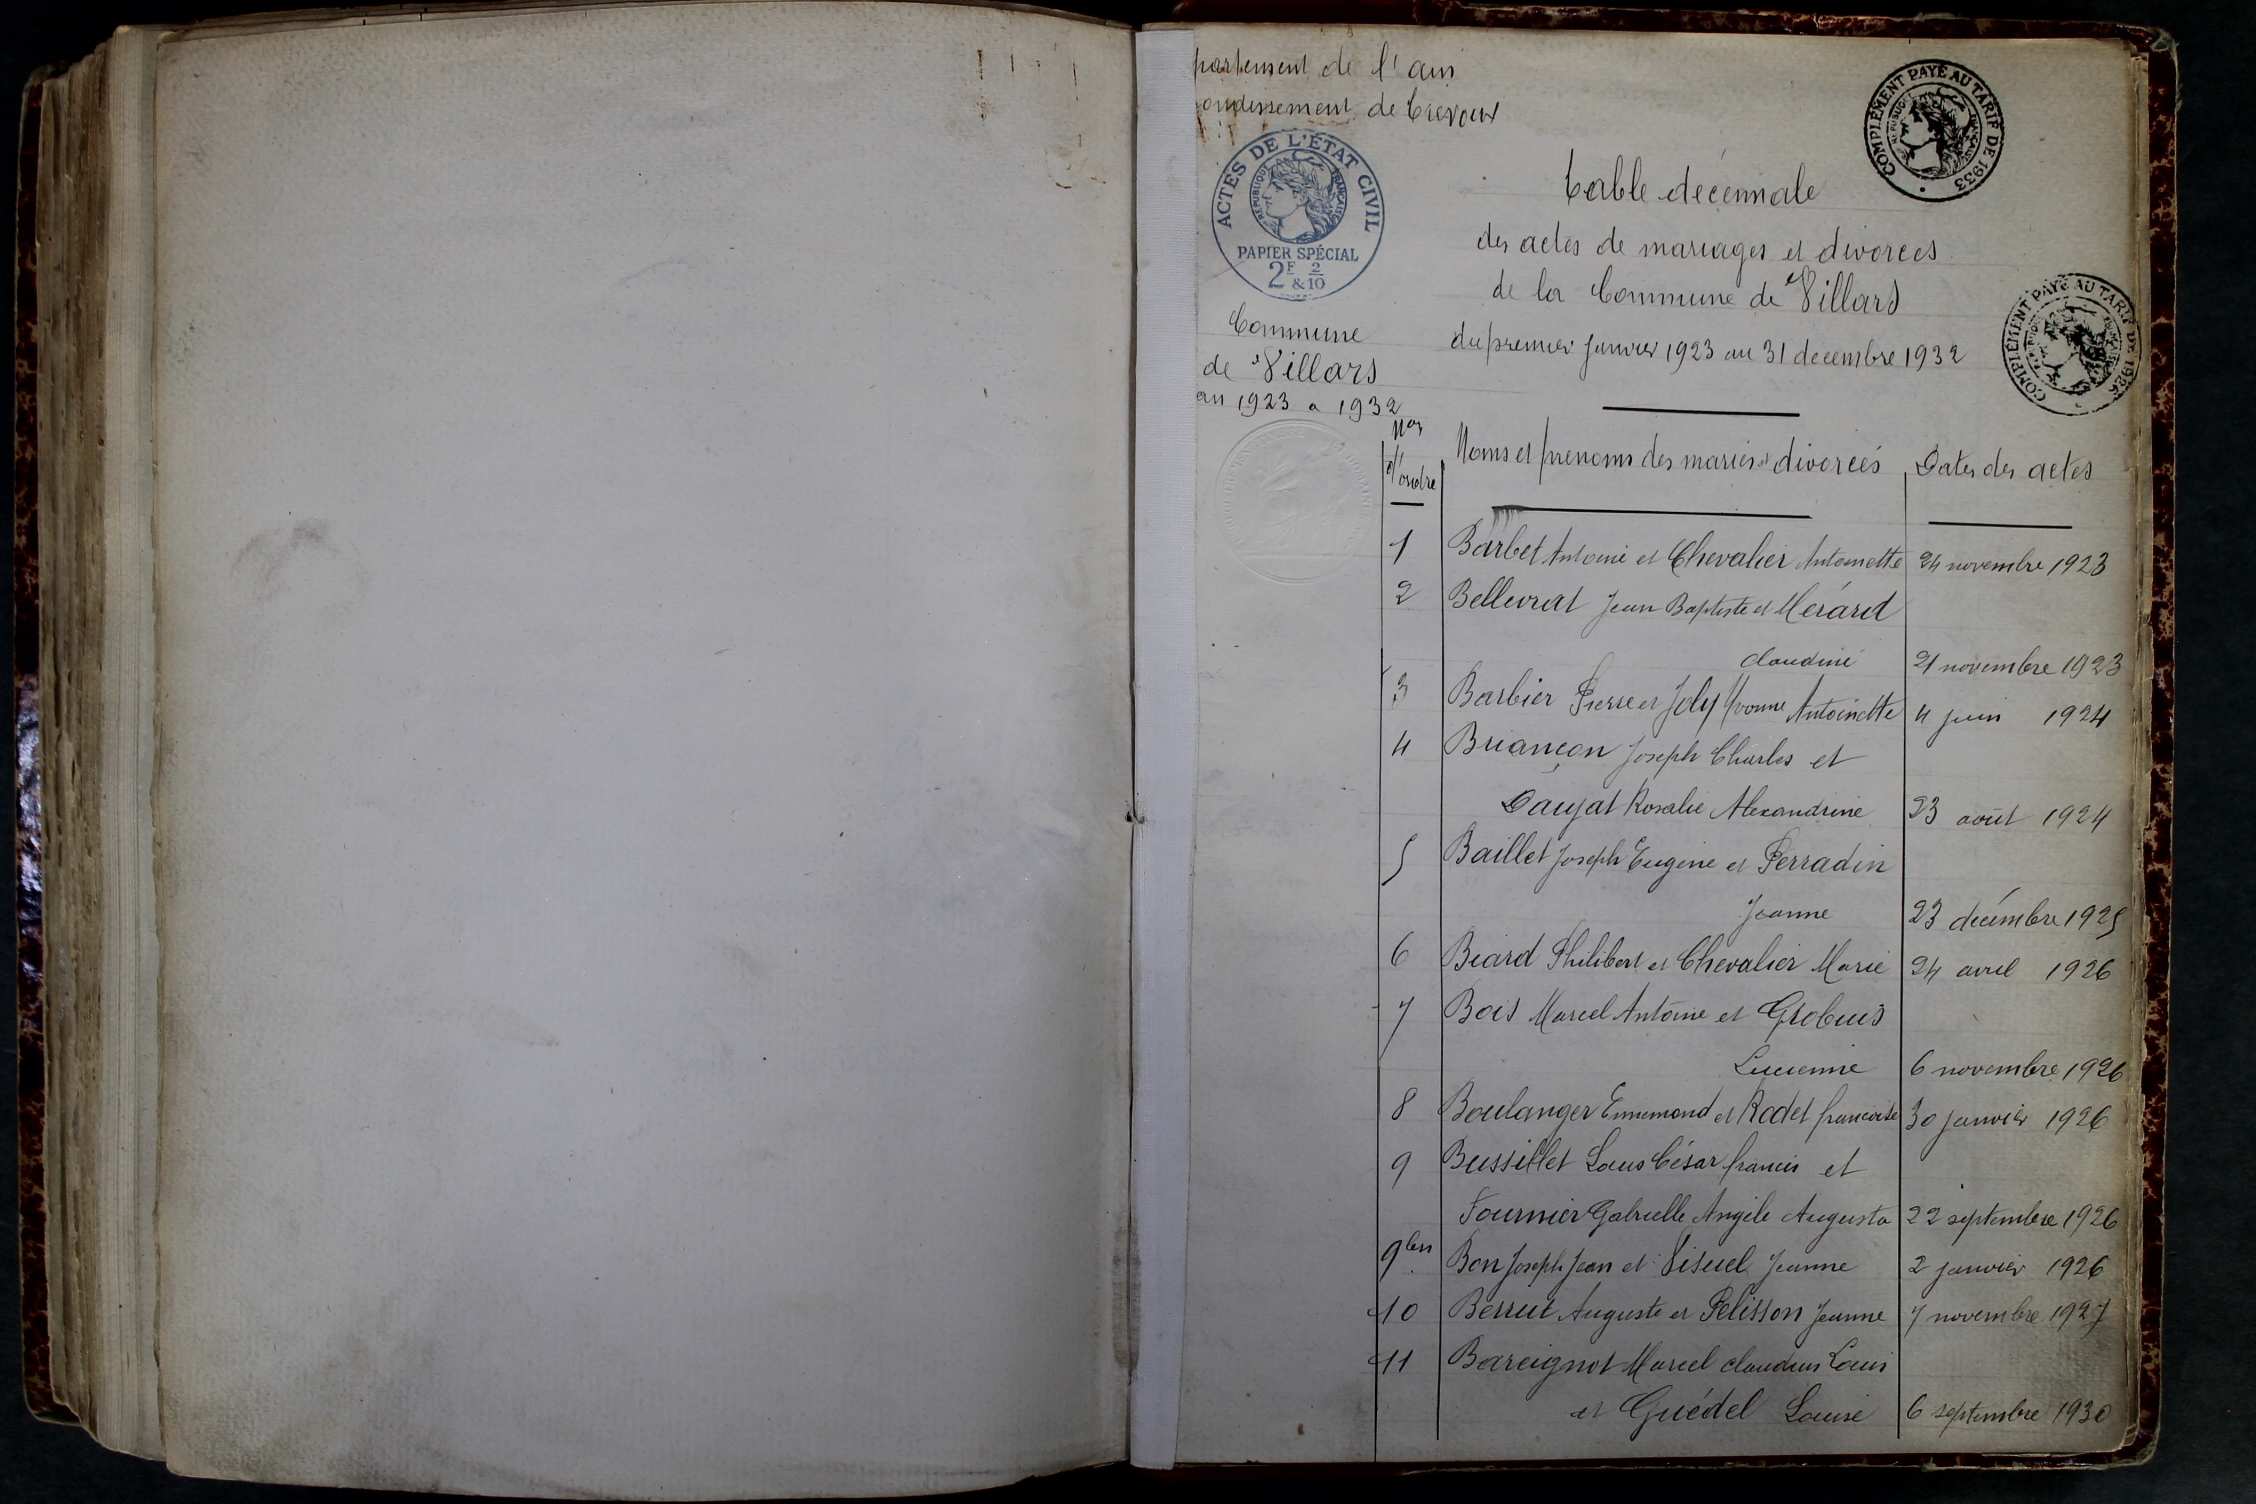 partement de l'ain
ondissement de Trévoux
ACTES DE L'ÉTAT CIVIL
RÉPUBLIQUE FRANÇAISE
PAPIER SPÉCIAL
2F & 2/10
COMPLÉMENT PAYÉ AU TARIF DE 1933
RÉPUBLIQUE FRANÇAISE
Table décennale
des actes de mariages et divorces
de la Commune de Villars
du premier janvier 1923 au 31 decembre 1932
COMPLÉMENT PAYÉ AU TARIF DE 1926
Commune
de Villars
an 1923 a 1932
Nos d'ordre Noms et prenoms des mariés et divorcés Dates des actes
1 Barbet Antoine et Chevalier Antoinette 24 novembre 1923
2 Bellevrat Jean Baptiste et Mérard
claudine 21 novembre 1923
3 Barbier Pierre et Joly Yvonne Antoinette 4 juin 1924
4 Briançon Joseph Charles et
Daujat Rosalie Alexandrine 23 août 1924
5 Baillet Joseph Eugène et Perradin
Jeanne 23 décembre 1925
6 Biard Philibert et Chevalier Marie 24 avril 1926
7 Bois Marcel Antoine et Grobuis
Lucienne 6 novembre 1926
8 Boulanger Ennemond et Rodet francoise 30 janvier 1926
9 Bussillet Louis César francis et
Fournier Gabrielle Angèle Augusta 22 septembre 1926
9 bis Bon Joseph Jean et Visuel Jeanne 2 janvier 1926
10 Berrut Auguste et Pelisson Jeanne 7 novembre 1927
11 Bareignot Marcel claudius Louis
et Guédel Louise 6 septembre 1930